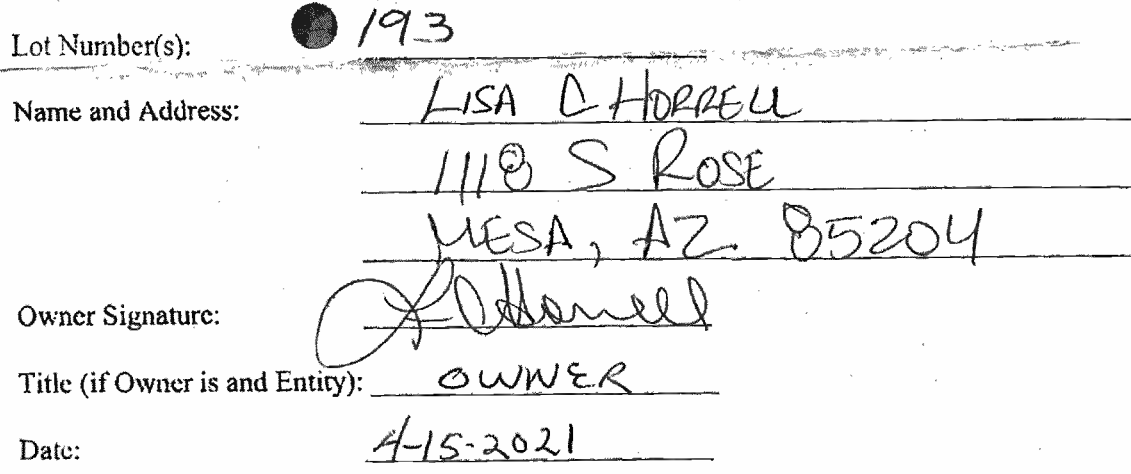 Lot Number(s): 193
Name and Address: LISA C HORRELL
1118 S ROSE
MESA, AZ. 85204
Owner Signature: L C Horrell
Title (if Owner is and Entity): OWNER
Date: 4-15-2021